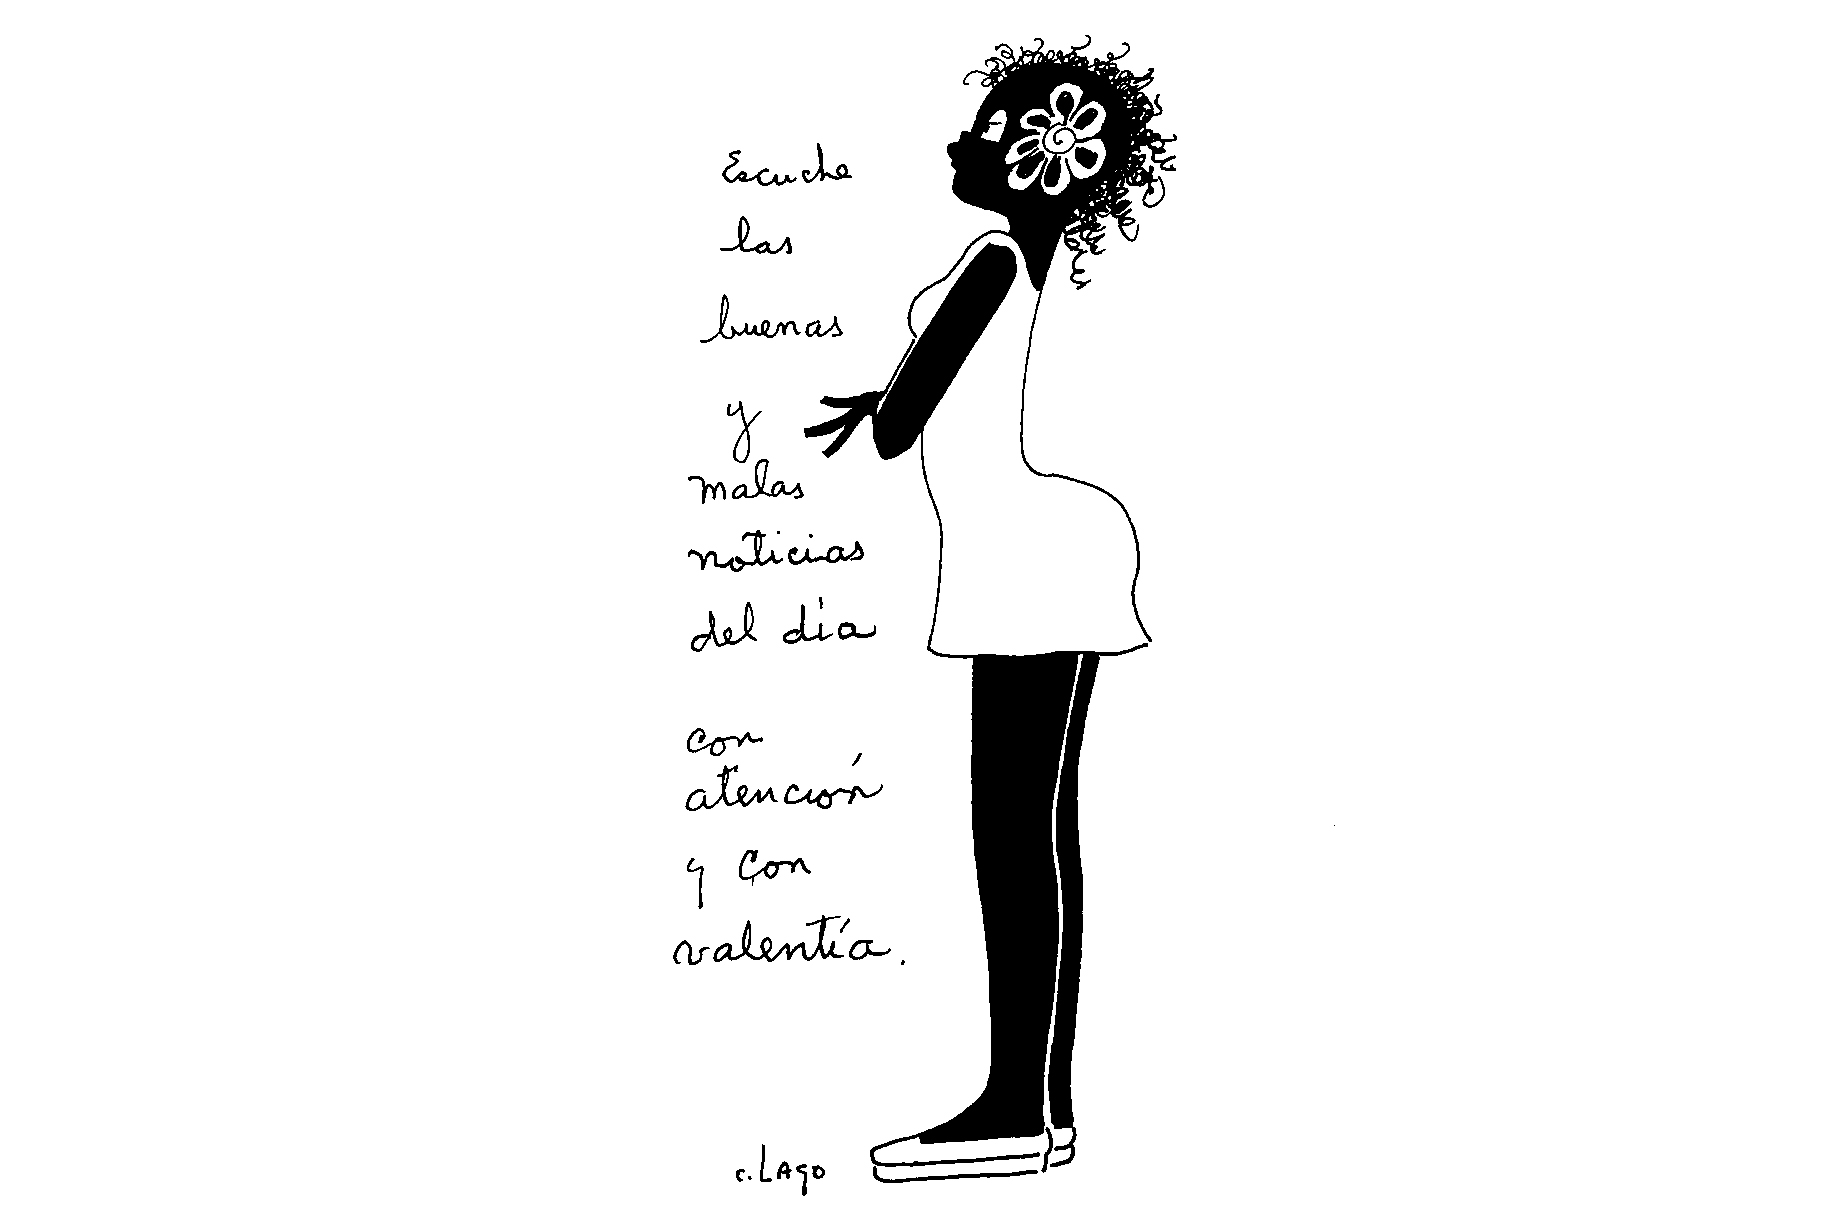 Escuche
las
buenas
y
malas
noticias
del día
con
atención
y con
valentía.
c. LAgo